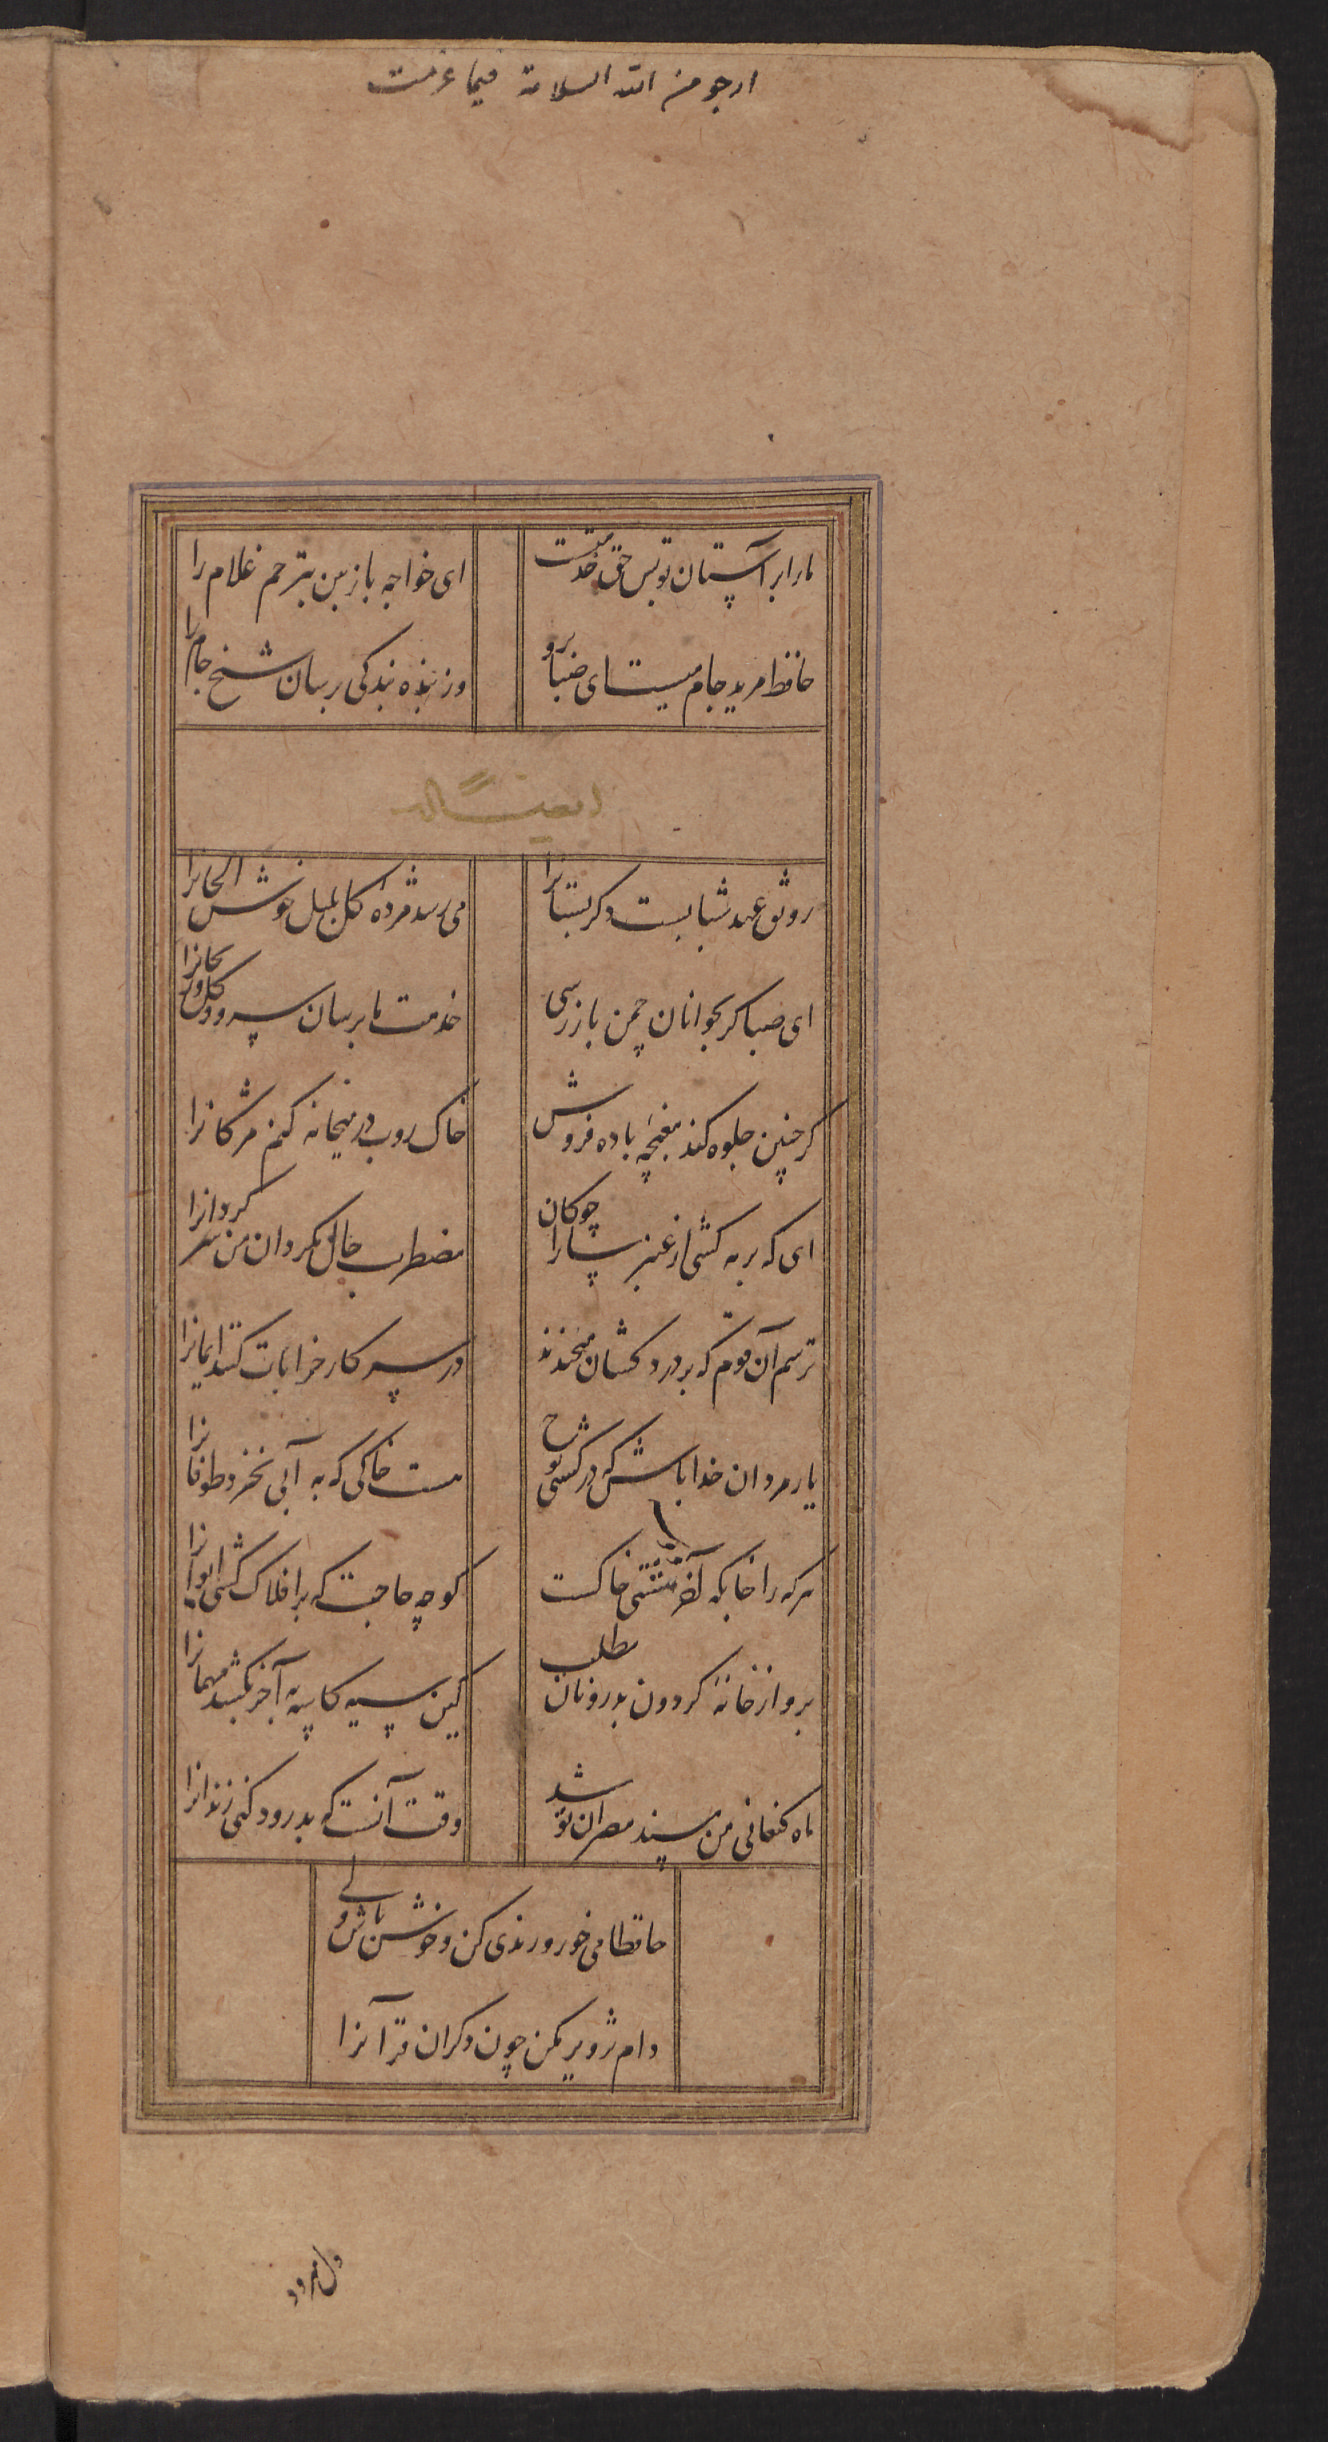 ارجو من الله السلامة فیما عزمت
مارا بر آستان تو بس حق خدمتست
ای خواجه باز بین بترحم غلام را
حافظ مرید جام میست ای صبا برو
وز بنده بندگی برسان شیخ جام را
ایضا له
رونق عهد شبابست دکر بستانرا
می رسد مژدهٔ کل بلبل خوش الحانرا
ای صبا کر بجوانان چمن باز رسی
خدمت ما برسان سرو و کل و ریحانرا
کر چنین جلوه کند مغبچهٔ باده فروش
خاک روب در میخانه کنم مژکانرا
ای که بر مه کشی از عنبر سارا چوکان
مضطرب حال مکردان من سرکردانرا
ترسم آن قوم که بر درد کشان میخندند
در سر کار خرابات کنند ایمانرا
یار مردان خدا باش که در کشتی نوح
هست خاکی که به آبی نخرد طوفانرا
هر که را خابکه آخر مشتی خاکست
کو چه حاجت که بر افلاک کشی ایوانرا
برو از خانهٔ کردون بدر و نان مطلب
کین سیه کاسه آخر بکشد مهمانرا
ماه کنعانی من مسند مصر ان تو شد
وقت آنست که بدرود کنی زندانرا
حافظا می خور و رندی کن و خوش باش ولی
دام تزویر مکن چون دکران قرآنرا